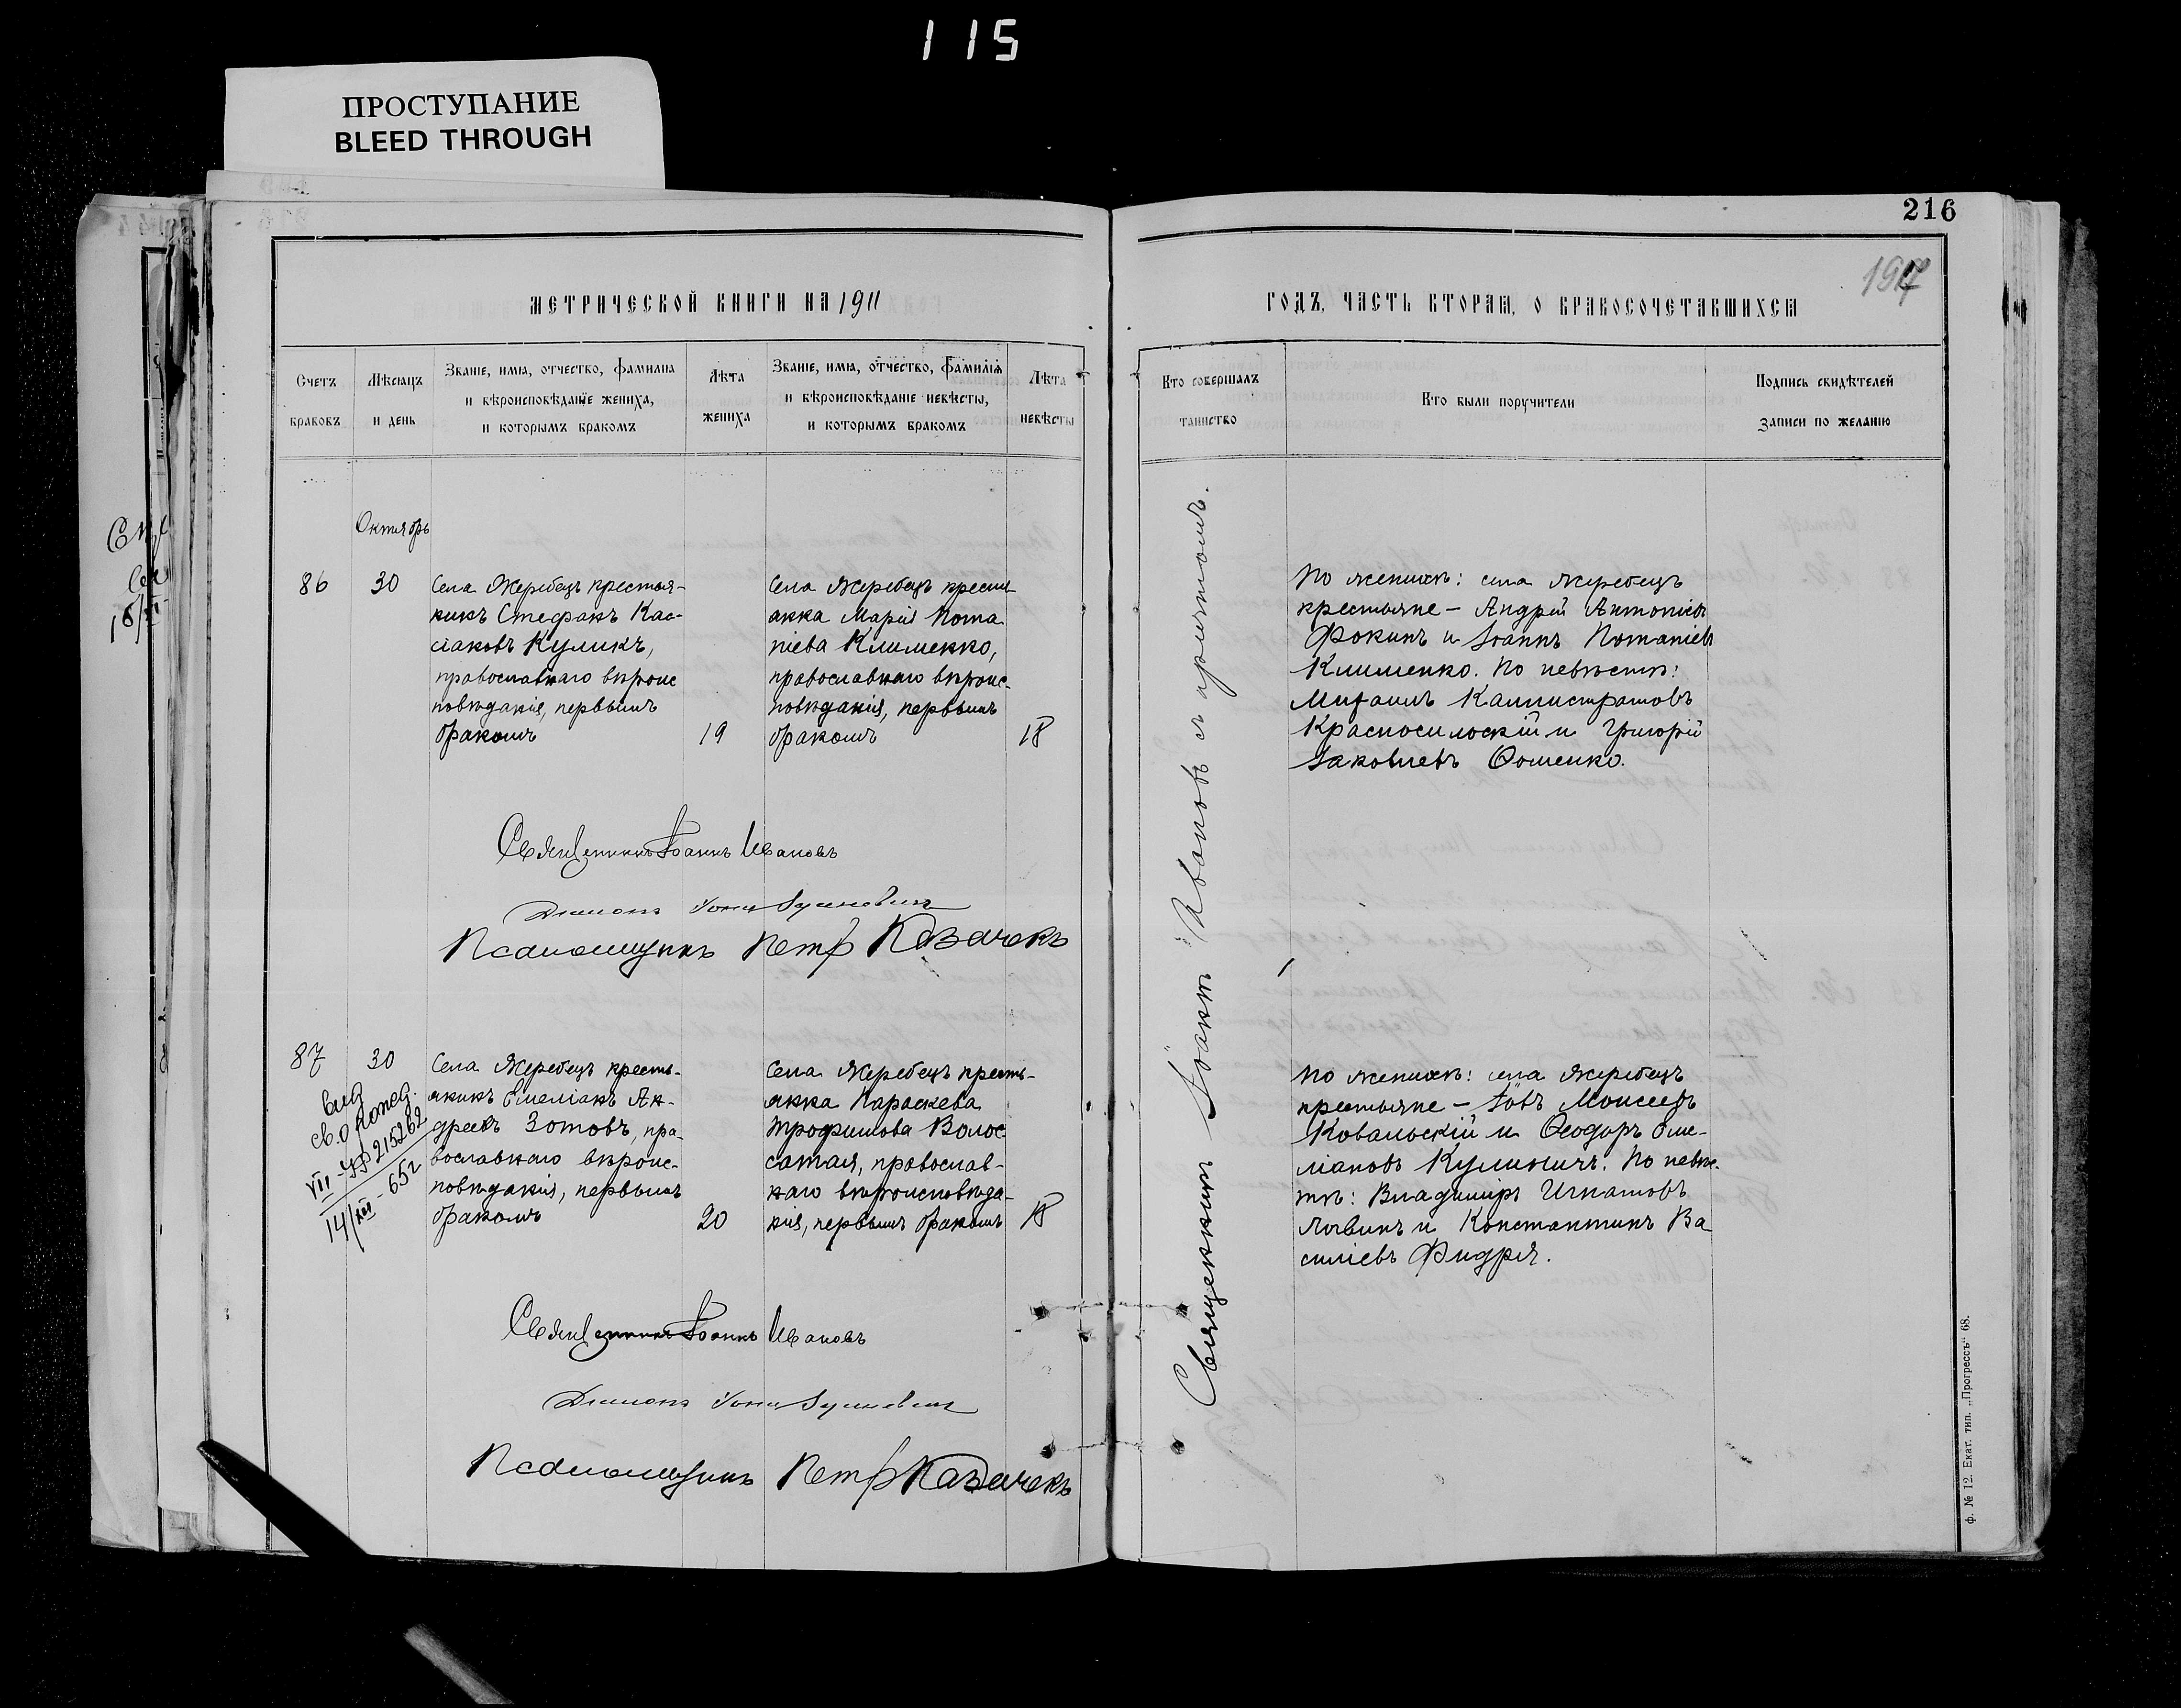 115
ПРОСТУПАНИЕ
BLEED THROUGH
216
1917
МЕТРИЧЕСКОЙ КНИГИ НА 1911
ГОДЪ, ЧАСТЬ ВТОРАЯ, О БРАКОСОЧЕТАВШИХСЯ
Счетъ
браковъ
Мѣсяцъ
и день
Званіе, имя, отчество, фамилія
и вѣроисповѣданіе жениха,
и которымъ бракомъ
Лѣта
жениха
Званіе, имя, отчество, фамилія
и вѣроисповѣданіе невѣсты,
и которымъ бракомъ
Лѣта
невѣсты
Кто совершалъ
таинство
Кто были поручители
Подпись свидѣтелей
записи по желанію
Октябрь
86
30
Села Жеребецъ крестья-
нинъ Стефанъ Кас-
сіановъ Куликъ,
православнаго вѣроис
повѣданія, первымъ
бракомъ
19
Села Жеребецъ кресть-
янка Марія Пота
піева Клименко,
православнаго вѣроис-
повѣданія, первымъ
бракомъ
18
Священникъ Іоаннъ Ивановъ с причтомъ.
По женихѣ: села Жеребецъ
крестьяне - Андрей Антоніевъ
Фокинъ и Іоаннъ Потапіевъ
Клименко. По невѣстѣ:
Михаилъ Каллистратовъ
Красносилоскій и Григорій
Іаковлевъ Ѳоменко.
Священникъ Іоаннъ Ивановъ
Діаконъ
Псаломщикъ Петръ Казачекъ
87
30
VII-УР 215262
14/XII-652
Села Жеребецъ кресть-
янинъ Емеліанъ Ан-
дреевъ Зотовъ, пра-
вославнаго вѣроис-
повѣданія, первымъ
бракомъ
20
Села Жеребецъ кресть-
янка Параскева
Трофимова Волос
сатая, православ-
наго вѣроисповѣда-
нія, первымъ бракомъ
18
По женихѣ: села Жеребецъ
крестьяне - Іовъ Моисеевъ
Ковальскій и Ѳеодоръ Еме-
ліановъ Кулиничъ. По невѣс-
тѣ: Владиміръ Игнатовъ
Логвинъ и Константинъ Ва
силіевъ Фидря.
Священникъ Іоаннъ Ивановъ
Діаконъ
Псаломщикъ Петръ Казачекъ
ф. № 12. Екат. тип. „Прогрессъ“ 68.